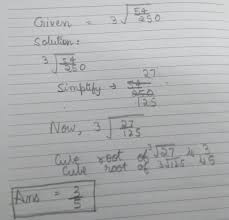 Given = 3√54/250
Solution:
3√54/250
27
Simplify → 54/250
125
Now, 3√27/125
Cube root of 3√27 is 3
Cube root of 3√125 is 5
Ans = 3/5